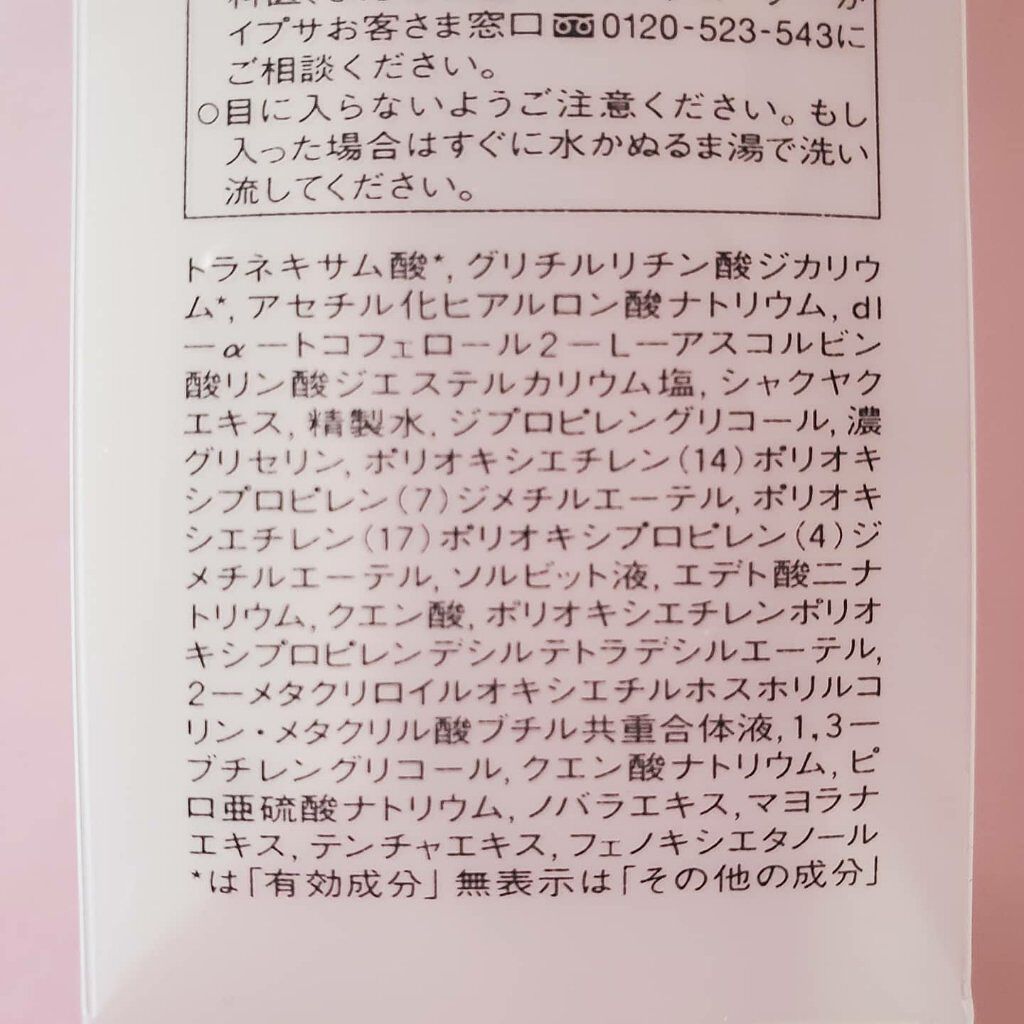 イプサお客さま窓口0120-523-543に
ご相談ください。
○目に入らないようご注意ください。もし
入った場合はすぐに水かぬるま湯で洗い
流してください。
トラネキサム酸*, グリチルリチン酸ジカリウ
ム*, アセチル化ヒアルロン酸ナトリウム, dl
ーαートコフェロール2ーLーアスコルビン
酸リン酸ジエステルカリウム塩, シャクヤク
エキス, 精製水, ジプロピレングリコール, 濃
グリセリン, ポリオキシエチレン(14)ポリオキ
シプロピレン(7)ジメチルエーテル, ポリオキ
シエチレン(17)ポリオキシプロピレン(4)ジ
メチルエーテル, ソルビット液, エデト酸二ナ
トリウム, クエン酸, ポリオキシエチレンポリオ
キシプロピレンデシルテトラデシルエーテル,
2ーメタクリロイルオキシエチルホスホリルコ
リン・メタクリル酸ブチル共重合体液, 1,3ー
ブチレングリコール, クエン酸ナトリウム, ピ
ロ亜硫酸ナトリウム, ノバラエキス, マヨラナ
エキス, テンチャエキス, フェノキシエタノール
*は「有効成分」 無表示は「その他の成分」